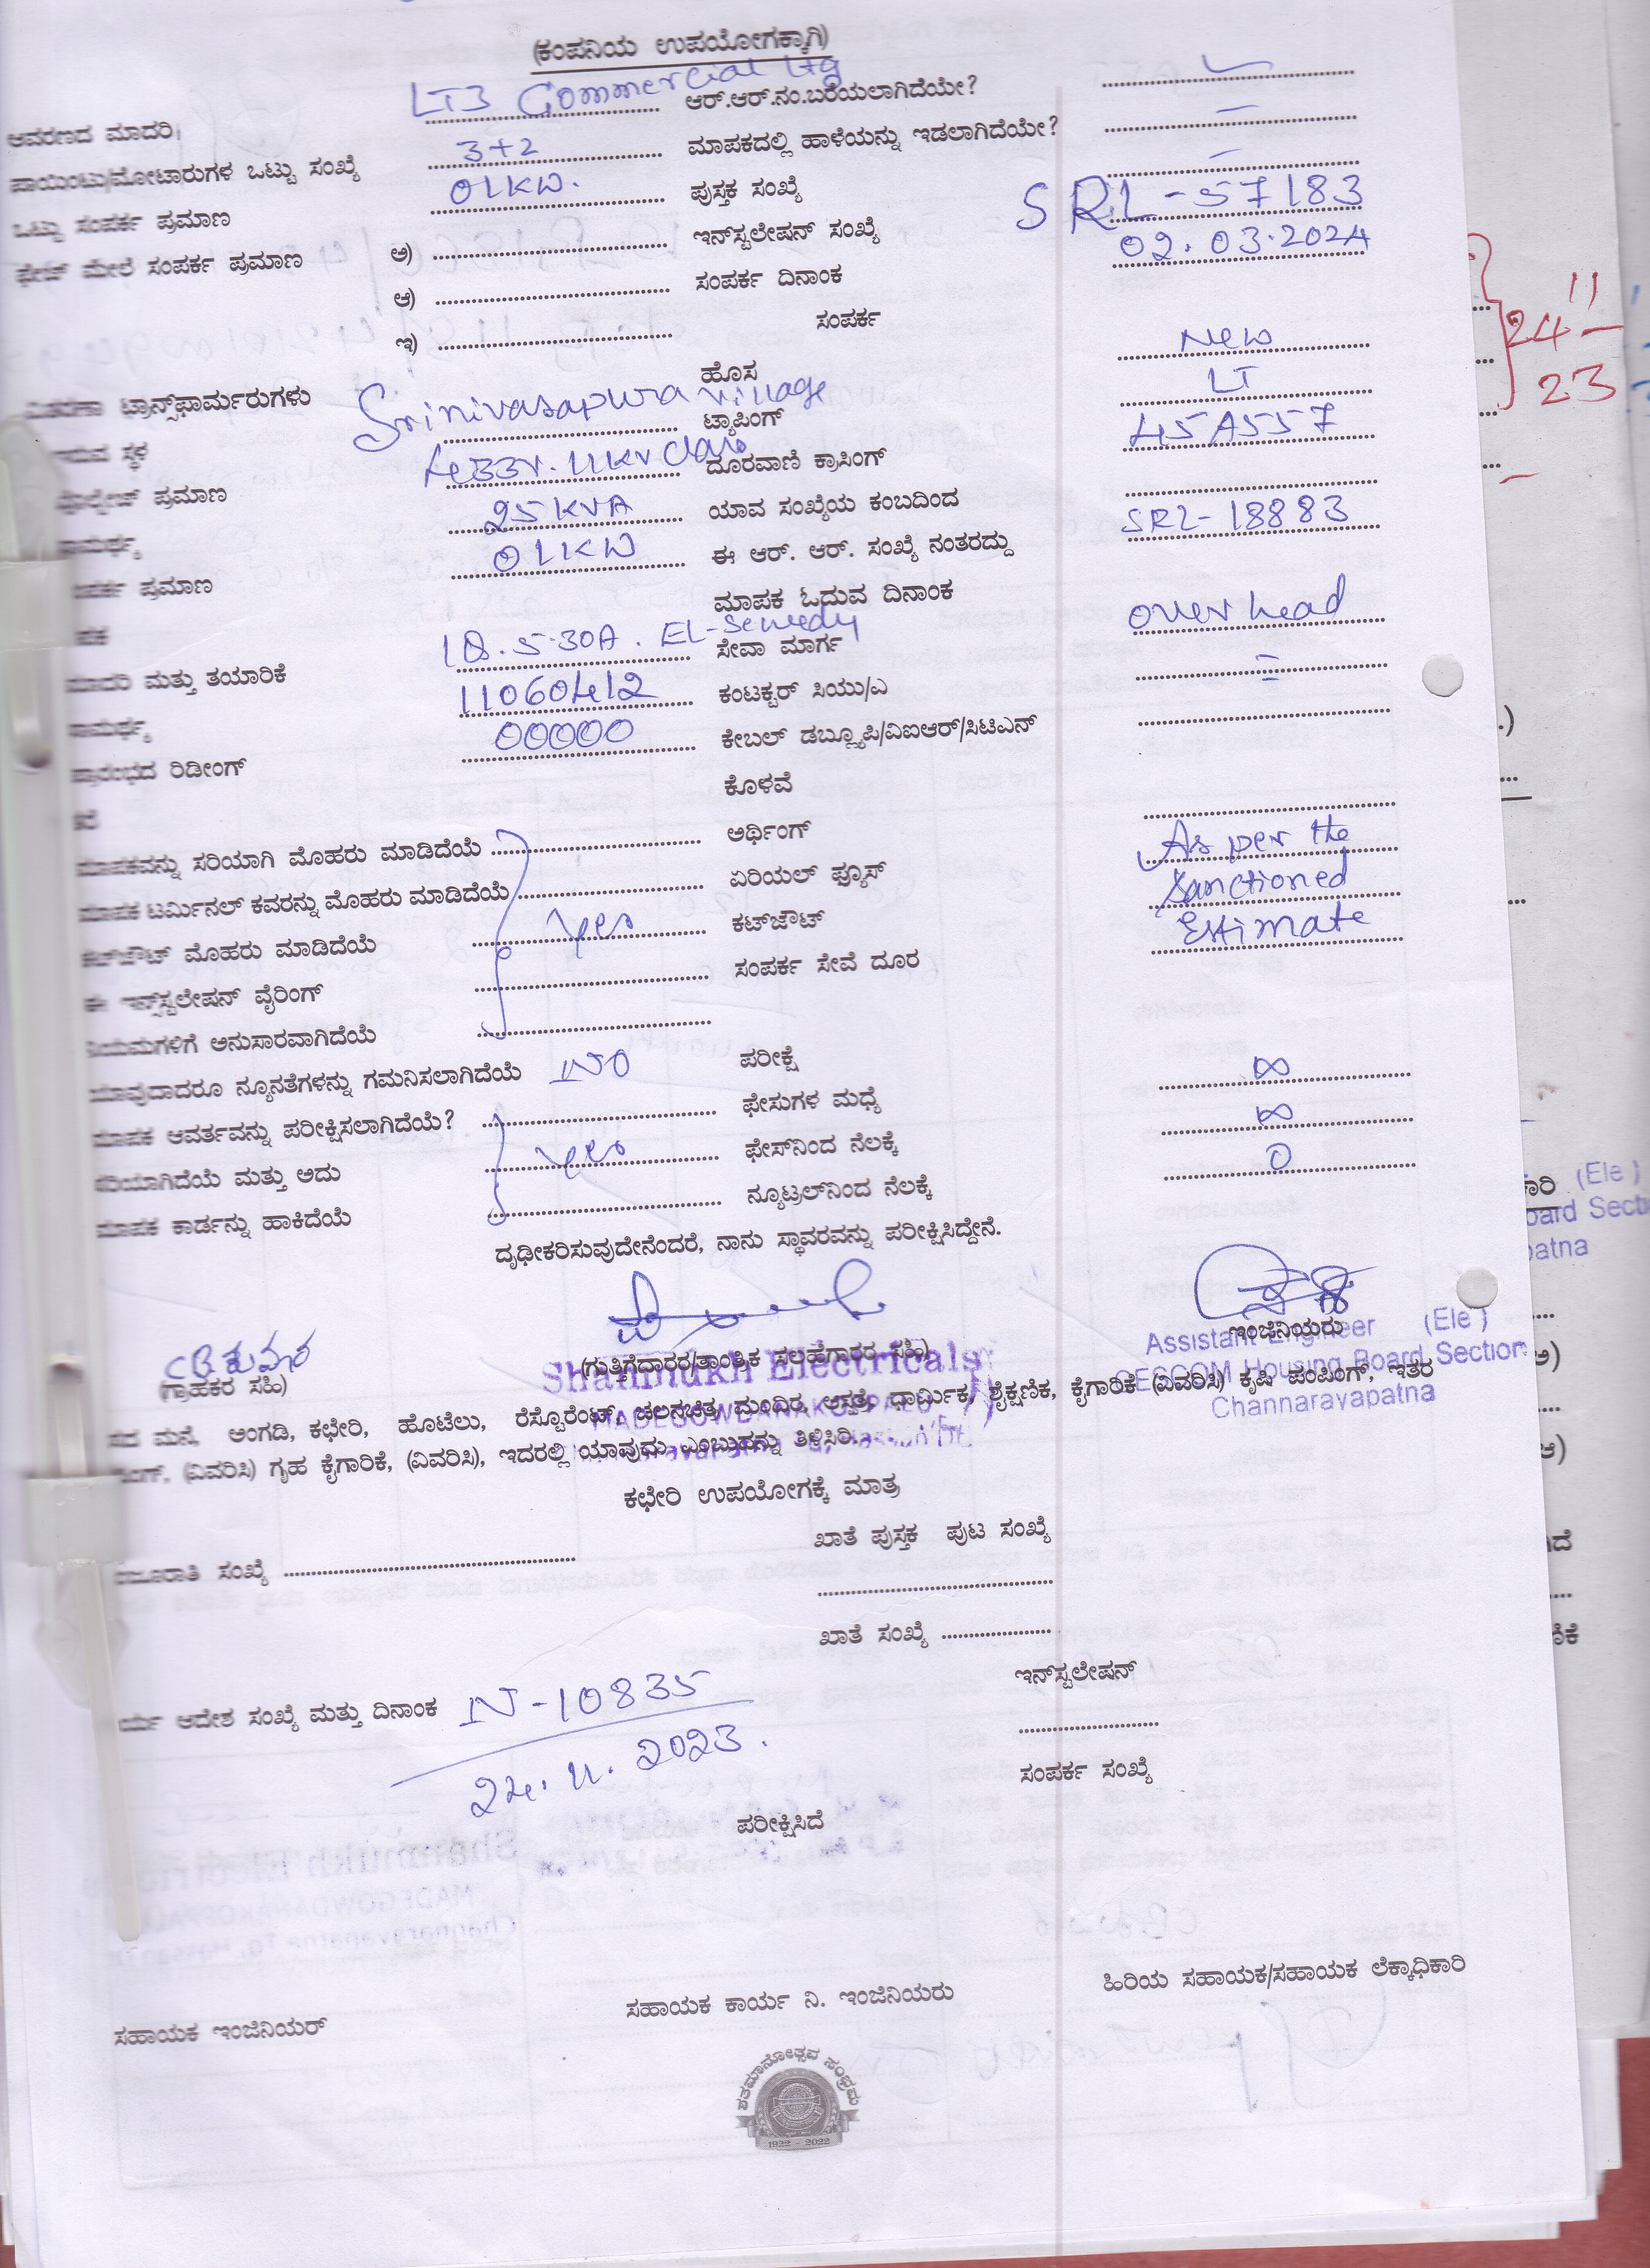 (ಕಂಪನಿಯ ಉಪಯೋಗಕ್ಕಾಗಿ)
ಆವರಣದ ಮಾದರಿ LT3 Commercial Ltg ಆರ್.ಆರ್.ನಂ.ಬರೆಯಲಾಗಿದೆಯೇ?
ಪಾಯಿಂಟು/ಮೋಟಾರುಗಳ ಒಟ್ಟು ಸಂಖ್ಯೆ 3+2 ಮಾಪಕದಲ್ಲಿ ಹಾಳೆಯನ್ನು ಇಡಲಾಗಿದೆಯೇ? –
ಒಟ್ಟು ಸಂಪರ್ಕ ಪ್ರಮಾಣ 01KW. ಪುಸ್ತಕ ಸಂಖ್ಯೆ –
ಫೇಚ್ ಮೇಲೆ ಸಂಪರ್ಕ ಪ್ರಮಾಣ ಅ) ಇನ್‌ಸ್ಟಲೇಷನ್ ಸಂಖ್ಯೆ SRL-57183
ಆ) ಸಂಪರ್ಕ ದಿನಾಂಕ 02.03.2024
ಇ) ಸಂಪರ್ಕ
ಹೊಸ New
ಟ್ರಾನ್ಸ್‌ಫಾರ್ಮರುಗಳು
ಸ್ಥಳ Srinivasapura village ಟ್ಯಾಪಿಂಗ್ LT
ಪ್ರಮಾಣ 433V. 11KV class ದೂರವಾಣಿ ಕ್ರಾಸಿಂಗ್ 45A557
25KVA ಯಾವ ಸಂಖ್ಯೆಯ ಕಂಬದಿಂದ
ಪ್ರಮಾಣ 01KW ಈ ಆರ್. ಆರ್. ಸಂಖ್ಯೆ ನಂತರದ್ದು SRL-18883
ಮಾಪಕ ಓದುವ ದಿನಾಂಕ
ಮಾದರಿ ಮತ್ತು ತಯಾರಿಕೆ 1Ø.5-30A. ಸೇವಾ ಮಾರ್ಗ over head
ಸಾಮರ್ಥ್ಯ 11060412 ಕಂಟಕ್ಟರ್ ಸಿಯು/ಎ
ಪ್ರಾರಂಭದ ರಿಡೀಂಗ್ 00000 ಕೇಬಲ್ ಡಬ್ಲ್ಯೂಪಿ/ವಿಐಆರ್/ಸಿಟಿಎನ್
ಕೊಳವೆ
ಮಾಪಕವನ್ನು ಸರಿಯಾಗಿ ಮೊಹರು ಮಾಡಿದೆಯೆ ಅರ್ಥಿಂಗ್
ಮಾಪಕ ಟರ್ಮಿನಲ್ ಕವರನ್ನು ಮೊಹರು ಮಾಡಿದೆಯೆ ಏರಿಯಲ್ ಫ್ಯೂಸ್ As per the
ಕಟ್‌ಔಟ್ ಮೊಹರು ಮಾಡಿದೆಯೆ yes ಕಟ್‌ಔಟ್ Sanctioned
ಈ ಇನ್‌ಸ್ಟಲೇಷನ್ ವೈರಿಂಗ್ ಸಂಪರ್ಕ ಸೇವೆ ದೂರ Estimate
ನಿಯಮಗಳಿಗೆ ಅನುಸಾರವಾಗಿದೆಯೆ
ಯಾವುದಾದರೂ ನ್ಯೂನತೆಗಳನ್ನು ಗಮನಿಸಲಾಗಿದೆಯೆ NO ಪರೀಕ್ಷೆ
ಮಾಪಕ ಆವರ್ತವನ್ನು ಪರೀಕ್ಷಿಸಲಾಗಿದೆಯೆ? ಫೇಸುಗಳ ಮಧ್ಯೆ ∞
ಸರಿಯಾಗಿದೆಯೆ ಮತ್ತು ಅದು yes ಫೇಸ್‌ನಿಂದ ನೆಲಕ್ಕೆ ∞
ಮಾಪಕ ಕಾರ್ಡನ್ನು ಹಾಕಿದೆಯೆ ನ್ಯೂಟ್ರಲ್‌ನಿಂದ ನೆಲಕ್ಕೆ 0
ದೃಢೀಕರಿಸುವುದೇನೆಂದರೆ, ನಾನು ಸ್ಥಾವರವನ್ನು ಪರೀಕ್ಷಿಸಿದ್ದೇನೆ.
(ಗ್ರಾಹಕರ ಸಹಿ) (ಗುತ್ತಿಗೆದಾರರ/ತಾಂತ್ರಿಕ ಸಲಹೆಗಾರರ ಸಹಿ) ಇಂಜಿನಿಯರು
Shanmukh Electricals
MADEGOWDANAKOPPALU
Assistant Engineer (Ele)
CESCOM Housing Board Section
Channarayapatna
ಮನೆ, ಅಂಗಡಿ, ಕಛೇರಿ, ಹೊಟೆಲು, ರೆಸ್ಟೊರೆಂಟ್, ಚಲನಚಿತ್ರ ಮಂದಿರ, ಆಸ್ಪತ್ರೆ, ಧಾರ್ಮಿಕ, ಶೈಕ್ಷಣಿಕ, ಕೈಗಾರಿಕೆ (ವಿವರಿಸಿ) ಕೃಷಿ ಪಂಪಿಂಗ್, ಇತರ
(ವಿವರಿಸಿ) ಗೃಹ ಕೈಗಾರಿಕೆ, (ವಿವರಿಸಿ), ಇದರಲ್ಲಿ ಯಾವುದು ಎಂಬುದನ್ನು ತಿಳಿಸಿರಿ.
ಕಛೇರಿ ಉಪಯೋಗಕ್ಕೆ ಮಾತ್ರ
ಸಂಖ್ಯೆ ಖಾತೆ ಪುಸ್ತಕ ಪುಟ ಸಂಖ್ಯೆ
ಖಾತೆ ಸಂಖ್ಯೆ
ಇನ್‌ಸ್ಟಲೇಷನ್
ಆದೇಶ ಸಂಖ್ಯೆ ಮತ್ತು ದಿನಾಂಕ N-10835
24.11.2023.
ಸಂಪರ್ಕ ಸಂಖ್ಯೆ
ಪರೀಕ್ಷಿಸಿದೆ
ಸಹಾಯಕ ಇಂಜಿನಿಯರ್ ಸಹಾಯಕ ಕಾರ್ಯ ನಿ. ಇಂಜಿನಿಯರು ಹಿರಿಯ ಸಹಾಯಕ/ಸಹಾಯಕ ಲೆಕ್ಕಾಧಿಕಾರಿ
ಶತಮಾನೋತ್ಸವ ಸಂಭ್ರಮ
1922 - 2022
24 11
23
(Ele)